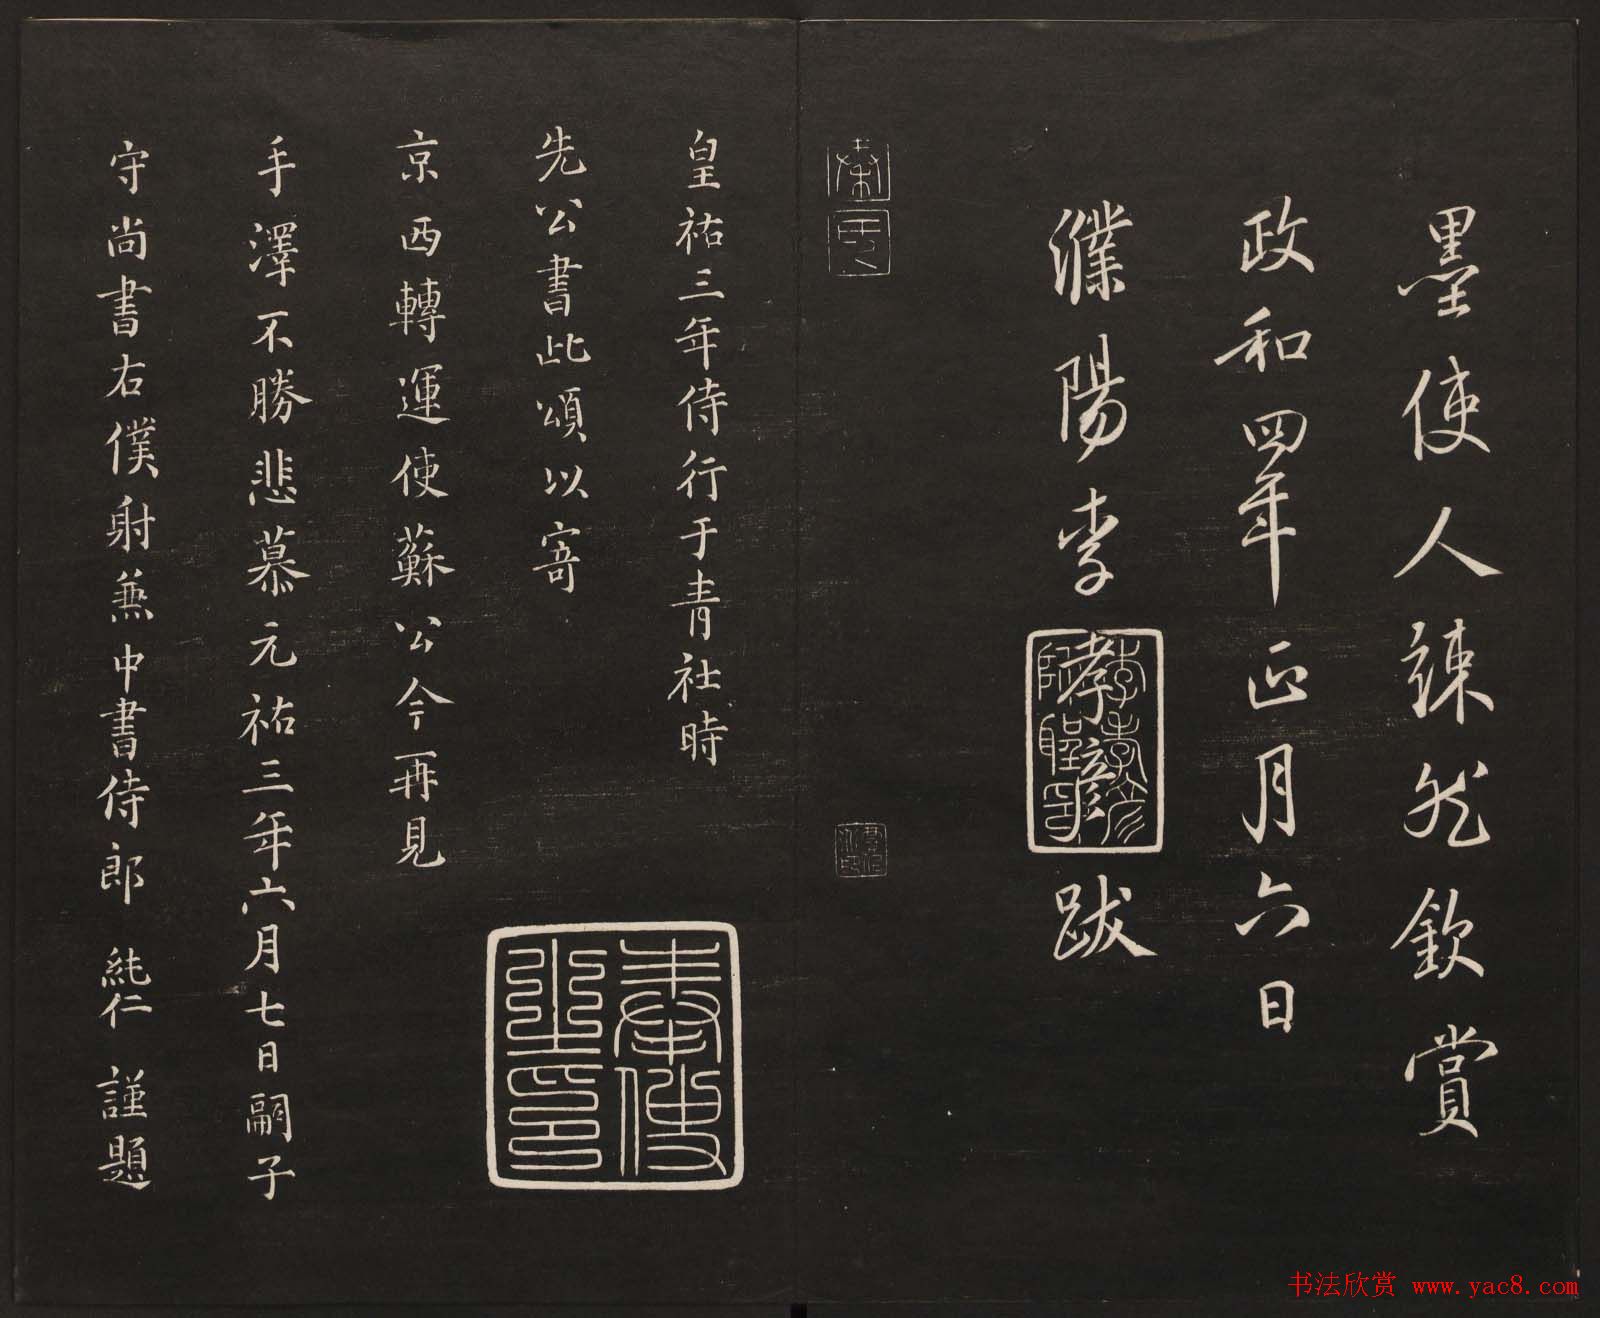 墨使人竦然欽賞
政和四年正月六日
濮陽李孝彥跋
皇祐三年侍行于青社時
先公書此頌以寄
京西轉運使蘇公今再見
手澤不勝悲慕元祐三年六月七日嗣子
守尚書右僕射兼中書侍郎 純仁 謹題
书法欣赏 www.yac8.com